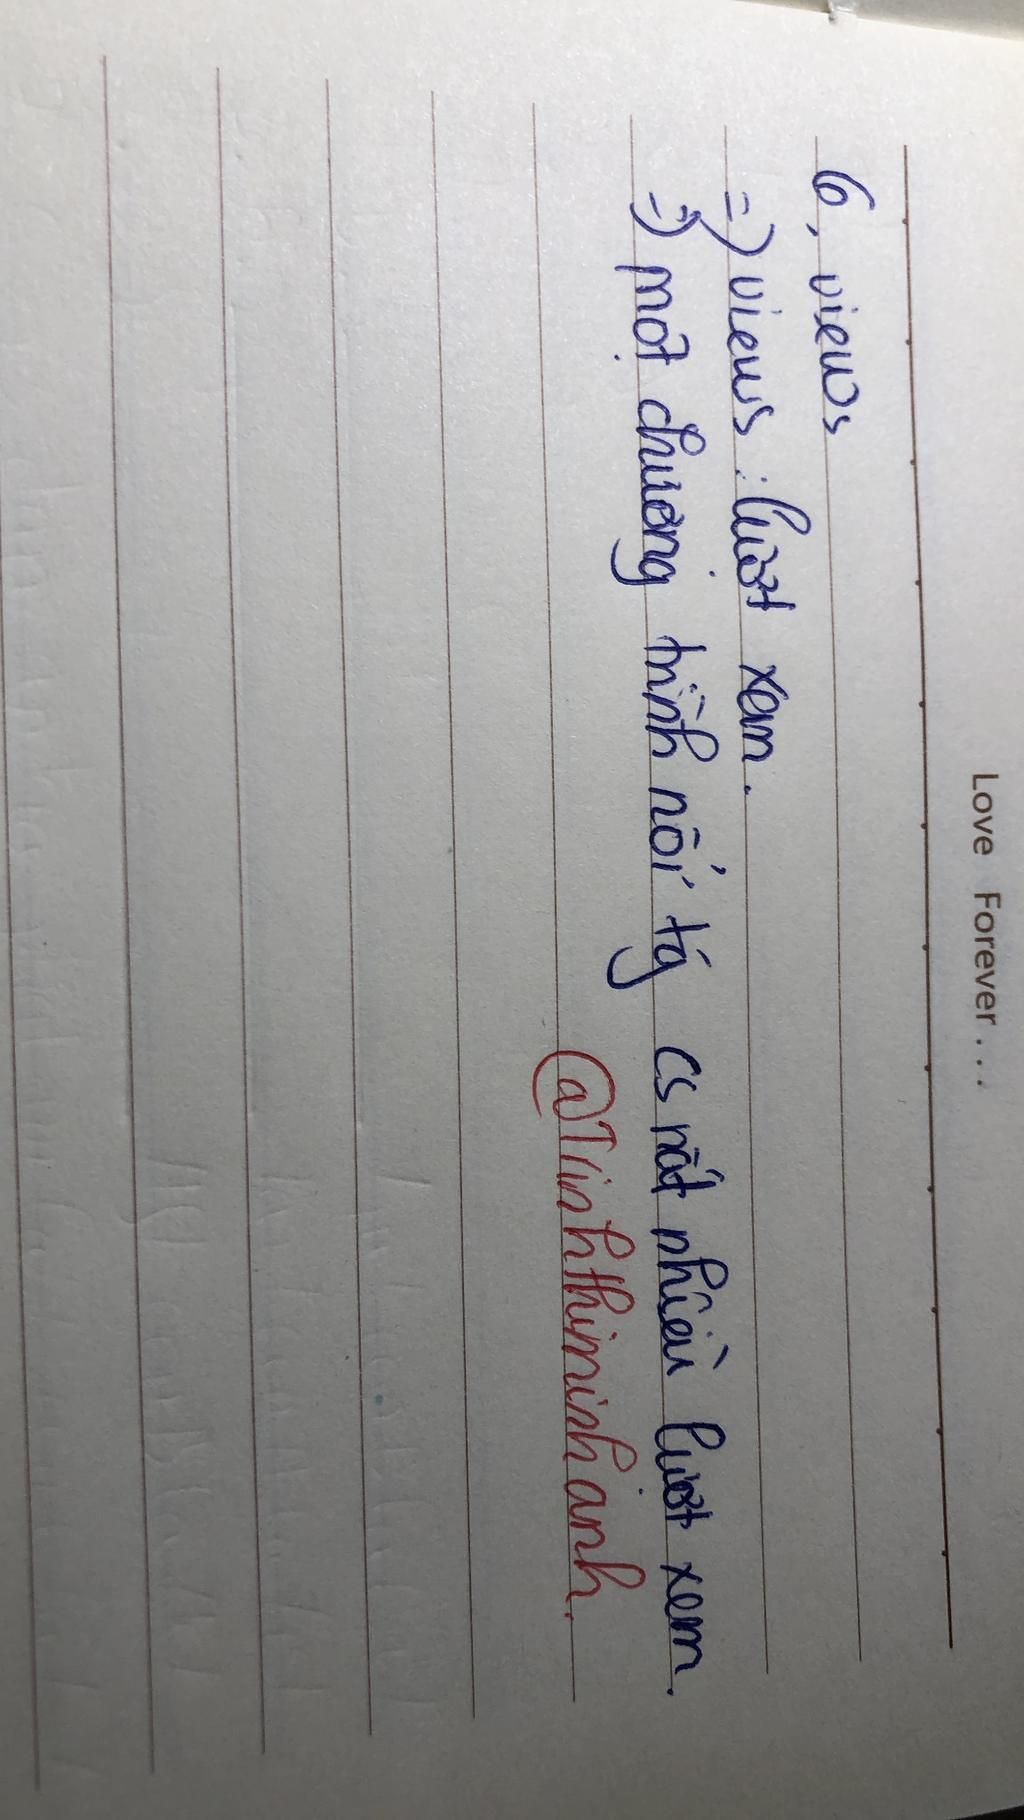 Love Forever...
6, views
=) views : lượt xem.
=) một chương trình nổi tý cs rất nhiều lượt xem.
@Trinhthiminhanh.